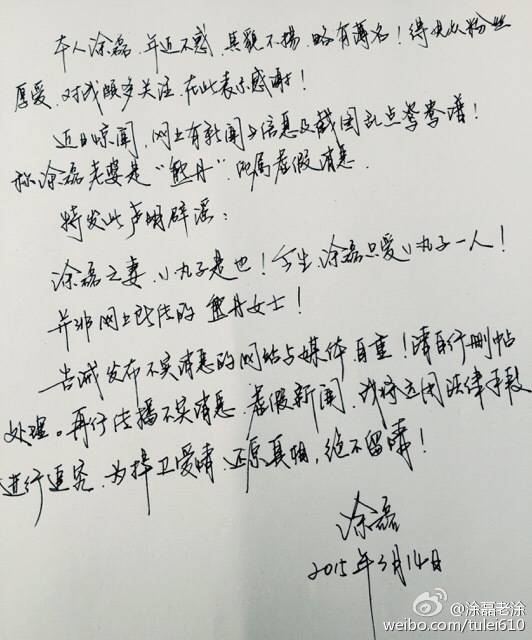 本人涂磊,年近不惑,其貌不扬,略有薄名!得也从粉丝
厚爱,对我颇多关注,在此表示感谢!
近日惊闻,网上有新闻与信息及截图乱点鸳鸯谱!
称涂磊老婆是“熊丹”,此属虚假消息.
特发此声明辟谣:
涂磊之妻,小丸子是也!今生,涂磊只爱小丸子一人!
并非网上所传的熊丹女士!
告诫发布不实消息的网站与媒体自重!请自行删帖
处理。再行传播不实消息,虚假新闻,我将运用法律手段
进行追究,为捍卫爱情,还原真相,绝不留情!
涂磊
2015年3月14日
@涂磊老涂
weibo.com/tulei610